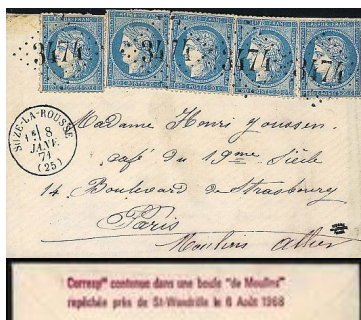 3474 3474 3474 3474
SUZE-LA-ROUSSE
1e 8
JANV.
71
(25)
Madame Henri Joussen
café du 19me Siècle
14 Boulevard de Strasbourg
Paris
Moulins Allier
Corresp^ce contenue dans une boule "de Moulins"
repêchée près de St-Wandrille le 6 Août 1968